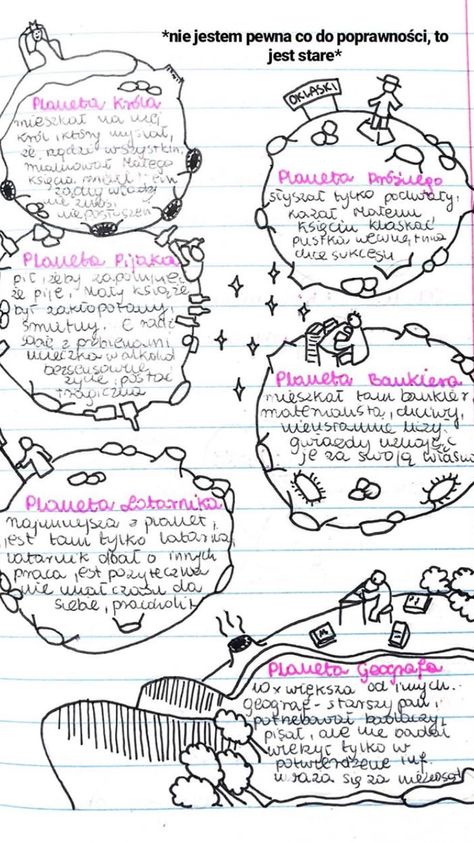 *nie jestem pewna co do poprawności, to
jest stare*
Planeta Króla
mieszkał na niej
król, który myślał,
że rządzi wszystkim,
mianował Małego
Księcia
żądny władzy
nie znosi
nieposłuszeń
OKLASKI
Planeta Próżnego
słyszał tylko pochwały,
kazał Małemu
Księciu klaskać
pustka wewnętrzna
chce sukcesu
Planeta Pijaka
pił, żeby zapomnieć
że pije, Mały Książę
był zakłopotany,
smutny.
z problemami
ucieczka w alkohol
bezsensowne
życie, postać
tragiczna
Planeta Bankiera
mieszkał tam bankier
materialista, chciwy,
nieustannie liczy
gwiazdy uznając
je za swoją własn
Planeta Latarnika
najmniejsza z planet,
jest tam tylko latarnia,
latarnik dbał o innych
praca jest pożyteczna
nie miał czasu dla
siebie, pracoholik
Planeta Geografa
10x większa od innych.
geograf - starszy pan,
potrzebował badaczy,
pisał, ale nie badał
wierzył tylko w
potwierdzone inf.
uważa się za